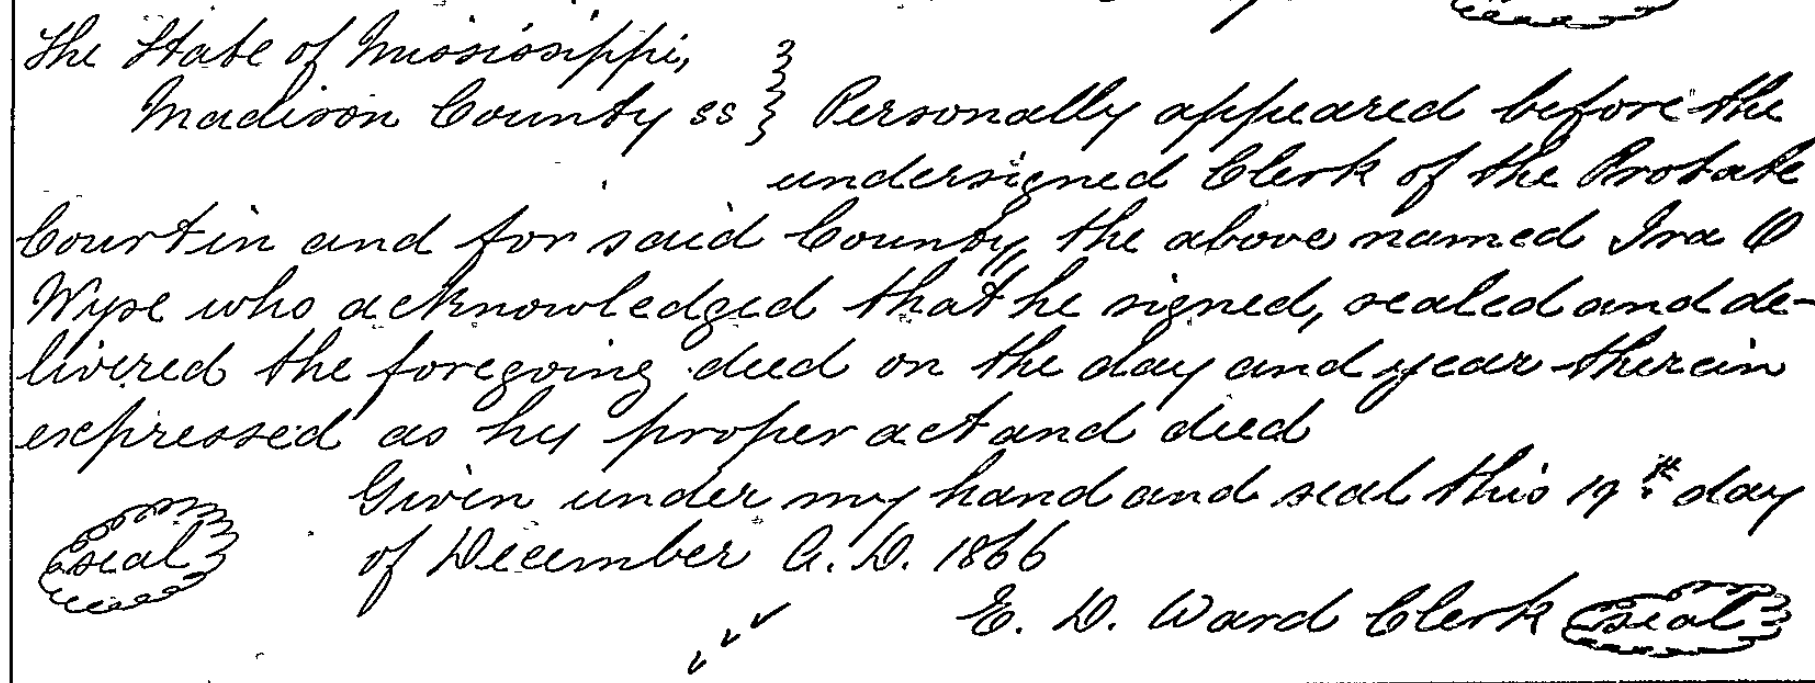 The State of Mississippi,
Madison County ss } Personally appeared before the
undersigned Clerk of the Probate
Court in and for said County, the above named Ira O
Wyse who acknowledged that he signed, sealed and de-
livered the foregoing deed on the day and year therein
expressed as his proper act and deed
Given under my hand and seal this 19th day
of December A. D. 1866
seal
E. D. Ward Clerk seal